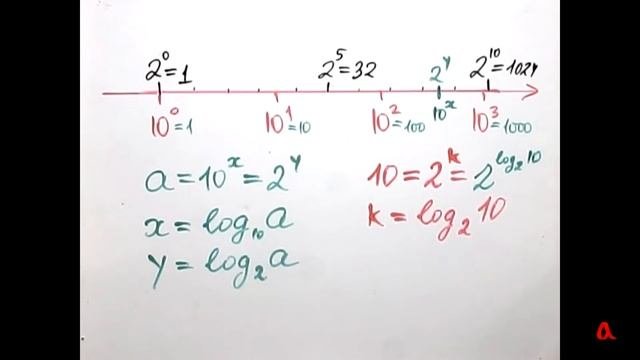 2⁰=1 2⁵=32 2^y 2¹⁰=1024
10⁰=1 10¹=10 10²=100 10^x 10³=1000
a=10^x=2^y 10=2^k=2^(log₂10)
x=log₁₀a k=log₂10
y=log₂a
a